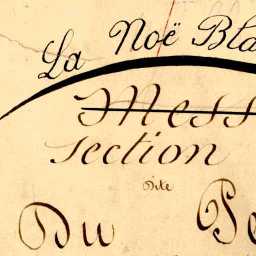 La Noë Bla
Mess
Section
Dite
Du Pe